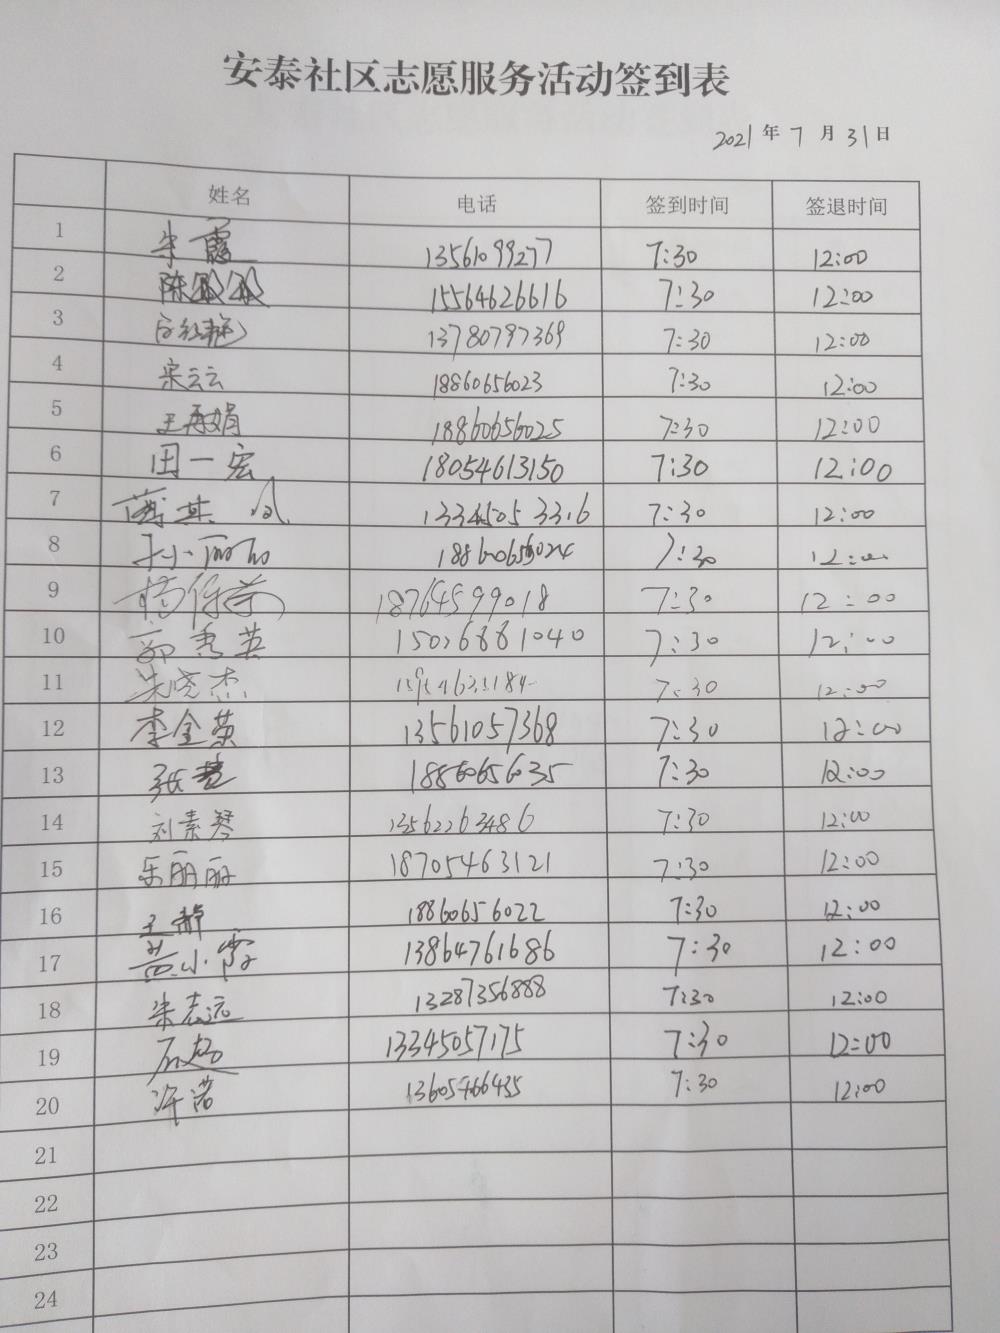 安泰社区志愿服务活动签到表
2021年7月31日
姓名 电话 签到时间 签退时间
1 朱霞 13561099277 7:30 12:00
2 陈 15564626616 7:30 12:00
3 13780797369 7:30 12:00
4 宋云云 18860656023 7:30 12:00
5 王再娟 18860656025 7:30 12:00
6 田一宏 18054613150 7:30 12:00
7 其凤 13345053316 7:30 12:00
8 孙小丽 18860656024 7:30 12:00
9 杨 18764599018 7:30 12:00
10 郭秀英 15026881040 7:30 12:00
11 朱晓杰 7:30 12:00
12 李金英 13561057368 7:30 12:00
13 张 18860656035 7:30 12:00
14 刘素琴 13562263486 7:30 12:00
15 乐丽丽 18705463121 7:30 12:00
16 王静 18860656022 7:30 12:00
17 盖小霞 13864761686 7:30 12:00
18 朱志远 13287356888 7:30 12:00
19 13345057175 7:30 12:00
20 许诺 13605466435 7:30 12:00
21
22
23
24